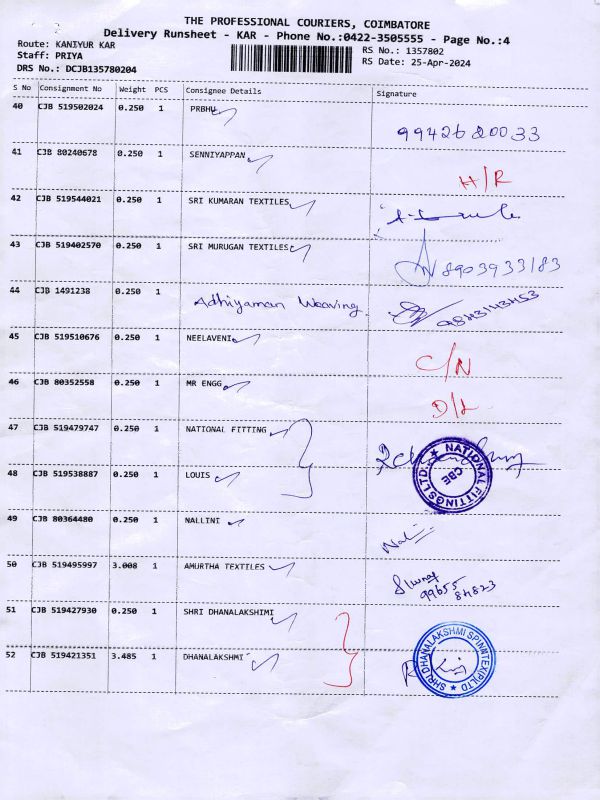 THE PROFESSIONAL COURIERS, COIMBATORE
Delivery Runsheet - KAR - Phone No.:0422-3505555 - Page No.:4
Route: KANIYUR KAR
RS No.: 1357802
Staff: PRIYA
RS Date: 25-Apr-2024
DRS No.: DCJB135780204
S No Consignment No Weight PCS Consignee Details Signature
40 CJB 519502024 0.250 1 PRBHU
9942620033
41 CJB 80240678 0.250 1 SENNIYAPPAN
H/R
42 CJB 519544021 0.250 1 SRI KUMARAN TEXTILES
43 CJB 519402570 0.250 1 SRI MURUGAN TEXTILES
8903933183
44 CJB 1491238 0.250 1 Adhiyaman Weaving
45 CJB 519510676 0.250 1 NEELAVENI
C/N
46 CJB 80352558 0.250 1 MR ENGG
D/L
47 CJB 519479747 0.250 1 NATIONAL FITTING
NATIONAL FITTINGS LTD.
CBE
48 CJB 519538887 0.250 1 LOUIS
49 CJB 80364480 0.250 1 NALLINI
Nali
50 CJB 519495997 3.008 1 AMURTHA TEXTILES
99655
84823
51 CJB 519427930 0.250 1 SHRI DHANALAKSHIMI
52 CJB 519421351 3.485 1 DHANALAKSHMI
SHRI DHANALAKSHMI SPINNTEX(P)LTD